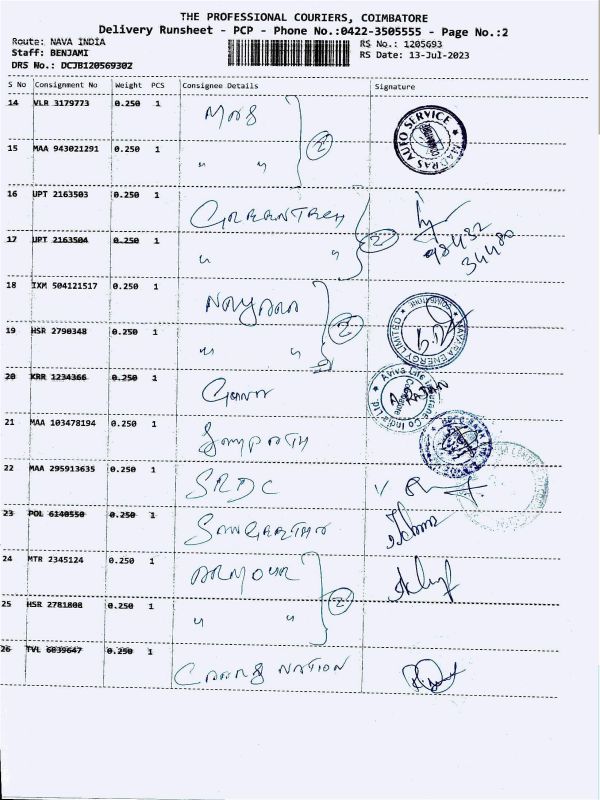 THE PROFESSIONAL COURIERS, COIMBATORE
Delivery Runsheet - PCP - Phone No.:0422-3505555 - Page No.:2
Route: NAVA INDIA
Staff: BENJAMI
DRS No.: DCJB120569302
RS No.: 1205693
RS Date: 13-Jul-2023
S No Consignment No Weight PCS Consignee Details Signature
14 VLR 3179773 0.250 1
② MADRAS AUTO SERVICE
15 MAA 943021291 0.250 1 " "
16 UPT 2163503 0.250 1 GREENTECH
② 98432 34480
17 UPT 2163504 0.250 1 " "
18 IXM 504121517 0.250 1 NAYARA
② NAYARA ENERGY LIMITED
19 HSR 2790348 0.250 1 " "
20 KRR 1234366 0.250 1
Aviva Life Insurance Co India Ltd Coimbatore
21 MAA 103478194 0.250 1 Sampath
22 MAA 295913635 0.250 1 SRDC
23 POL 6140550 0.250 1
24 MTR 2345124 0.250 1 ARMOUR
②
25 HSR 2781808 0.250 1 " "
26 TVL 6039647 0.250 1 NATION